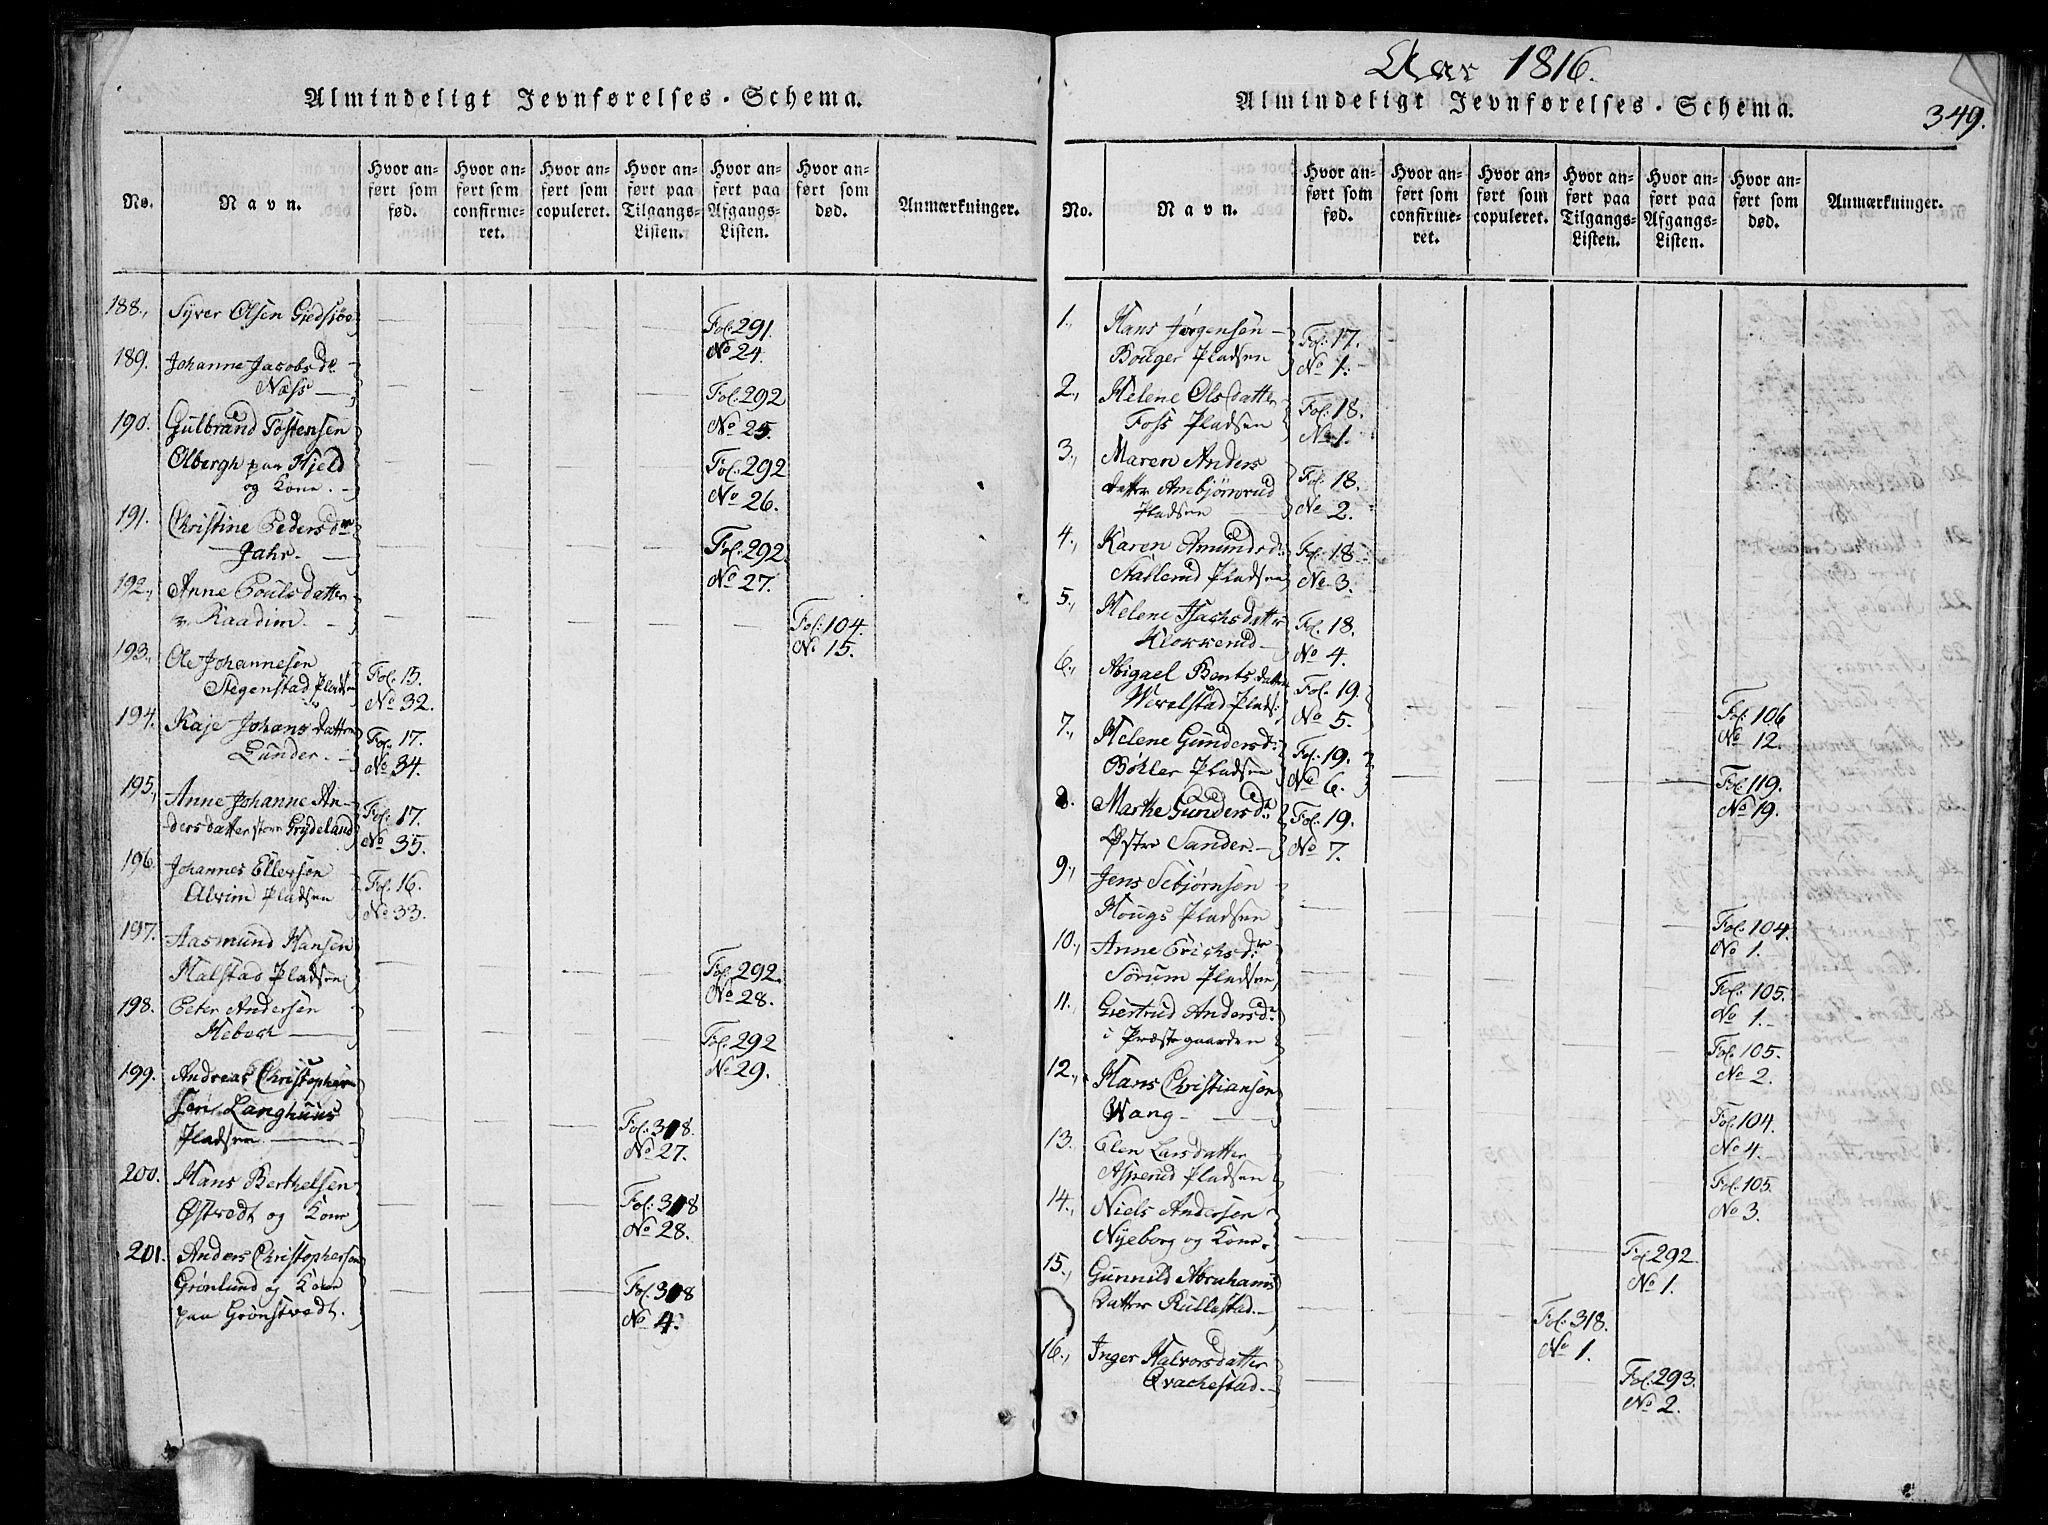 Almindeligt Jevnførelses-Schema.
No.
Navn.
Hvor anført som fød.
Hvor anført som confirmeret.
Hvor anført som copuleret.
Hvor anført paa Tilgangs-Listen.
Hvor anført paa Afgangs-Listen.
Hvor anført som død.
Anmærkninger.
188., Syver Olsen Giedsjøe
Fol. 291.
No 24.
189. Johanne Jacobsdr.
Næss
Fol. 292
No 25.
190. Gulbrand Tostensen
Olbergh paa Hjeld
og Kone.
Fol. 292
No 26.
191. Christine Pedersdr.
Jahr.
Fol. 292.
No 27.
192., Anne Poulsdatter
v. Kaadim.
Fol. 104.
No 15.
193., Ole Johannesen
Stegenstad Pladsen
Fol. 15.
No 32.
194. Kaje Johansdatter
Lunder.
Fol. 17.
No 34.
195., Anne Johanne An-
dersdatter store Grydeland
Fol. 17.
No 35.
196. Johannes Ellevsen
Alvim Pladsen
Fol. 16.
No 33.
197. Aasmund Hansen
Halstad Pladsen
Fol. 292.
No 28.
198. Peter Andersen
Hebech
Fol. 292
No 29.
199. Andreas Christopher
sen Langhuus
Pladsen
Fol. 318.
No 27.
200. Hans Berthelsen
Østvedt og Kone
Fol. 318
No 28.
201. Anders Christophersen
Grønlund og Kone
paa Grønstvedt.
Fol. 318
No 4.
Aar 1816.
Almindeligt Jevnførelses-Schema.
349.
No.
Navn.
Hvor anført som fød.
Hvor anført som confirmeret.
Hvor anført som copuleret.
Hvor anført paa Tilgangs-Listen.
Hvor anført paa Afgangs-Listen.
Hvor anført som død.
Anmærkninger.
1., Hans Jørgensen
Bouger Pladsen
Fol. 17.
No 1.
2., Helene Olsdatter
Foss Pladsen
Fol. 18.
No 1.
3., Maren Anders
datter Ambjørnrud
Pladsen
Fol. 18.
No 2.
4., Karen Amundsd:
Stablerud Pladsen
Fol. 18
No 3.
5., Helene Isachsdatter
Klokkerud
Fol. 18.
No 4.
6., Abigael Bentsdatter
Wevelstad Plads:
Fol. 19.
No 5.
Fol. 106
No 12.
7., Helene Gundersd:
Bøhler Pladsen
Fol. 19.
No 6.
Fol. 119.
No 19.
8. Marthe Gundersdr:
Østre Sander.
Fol. 19.
No 7.
9., Jens Sebjørnsen
Hougs Pladsen
Fol. 104.
No 1.
10., Anne Erichsdr.
Sørum Pladsen
Fol. 105.
No 1.
11. Giertrud Andersdr.
i Præstegaarden
Fol. 105.
No 2.
12., Hans Christiansen
Wang
Fol. 104.
No 4.
13. Elen Larsdatter
Asperud Pladsen
Fol. 105.
No 3.
14., Niels Andersen
Nyeborg og Kone.
Fol. 292.
No 1.
15., Gunnild Abrahams
datter Rullestad.
Fol. 318.
No 1.
16., Inger Halvorsdatter
Qvachestad.
Fol. 293.
No 2.